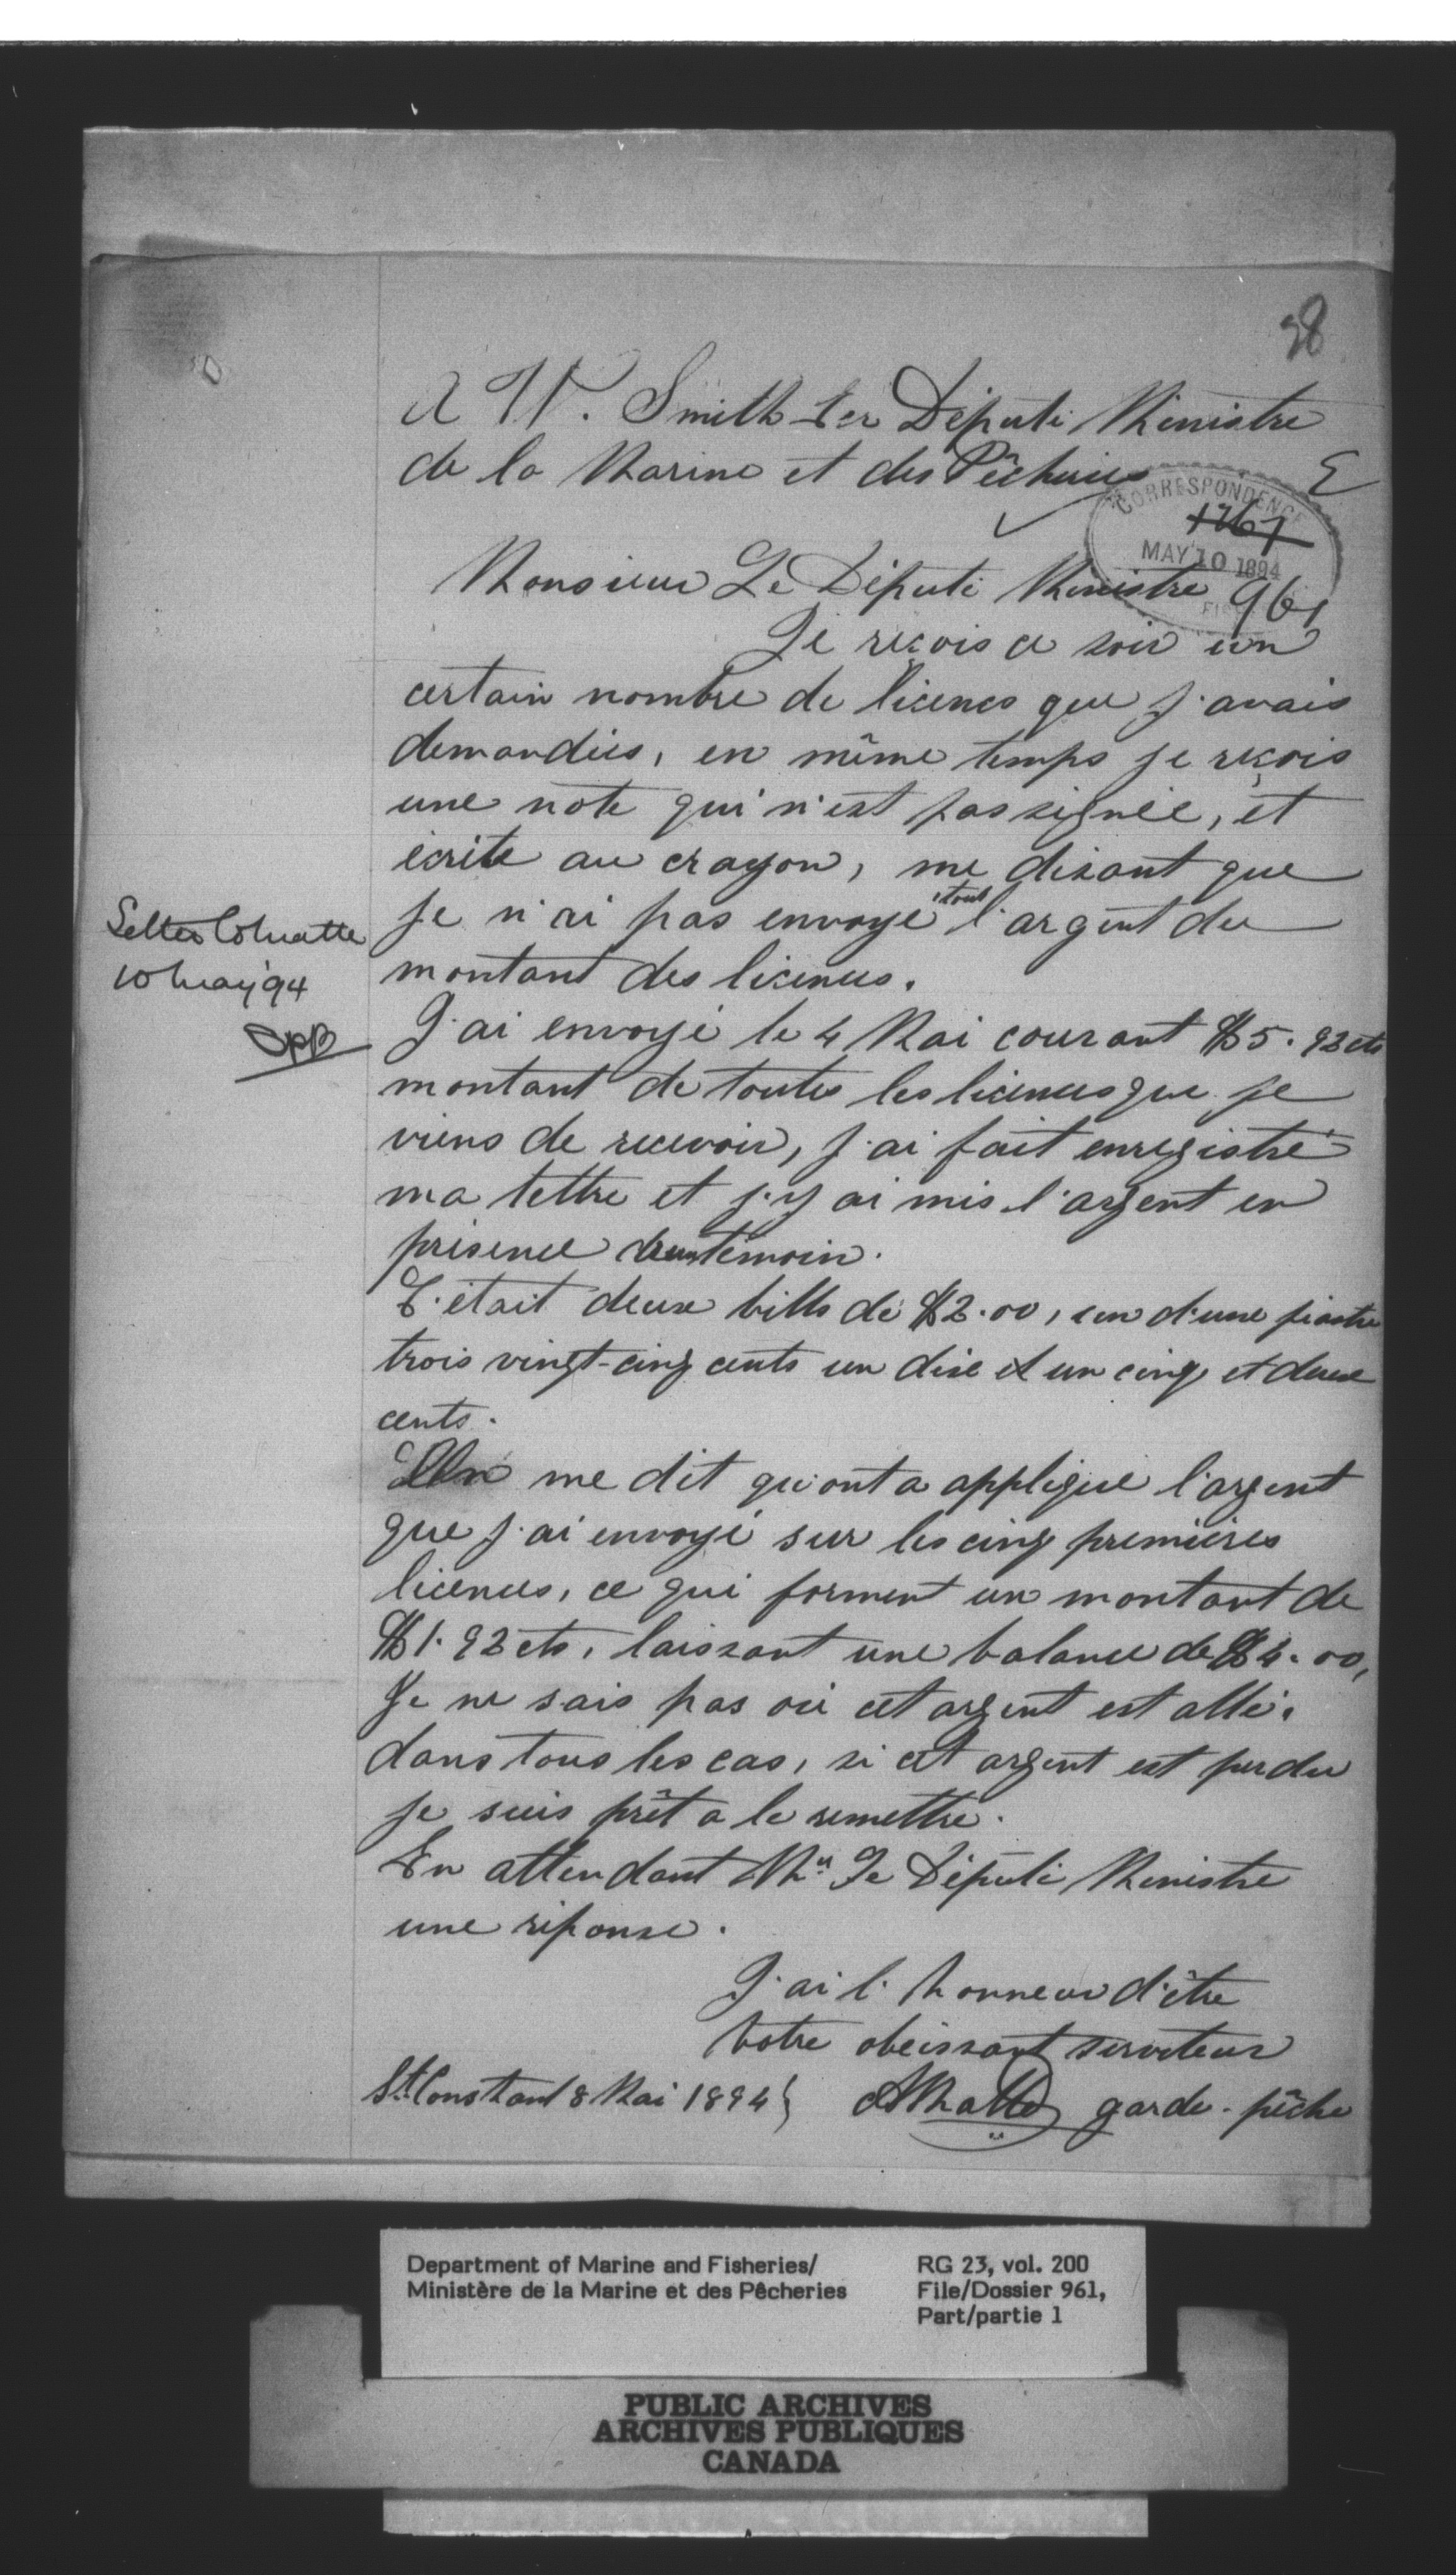 38
A W. Smith 1er Député Ministre
de la Marine et des Pêcheries
E
CORRESPONDENCE
1767
MAY 10 1894
961
Monsieur Le Député Ministre
Je reçois ce soir un
certain nombre de licences que j'avais
demandées, en même temps je reçois
une note qui n'est pas signée, et
écrite au crayon, me disant que
je n'ai pas envoyé tout l'argent du
montant des licences.
Letter to Matte
10 May '94
J'ai envoyé le 4 Mai courant $5.92 cts
montant de toutes les licences que je
viens de recevoir, j'ai fait enregistré
ma lettre et j'y ai mis l'argent en
présence d'un témoin.
C'était deux bills de $2.00, un d'une piastre
trois vingt-cinq cents un dix et un cinq et deux
cents.
On me dit qu'ont a appliqué l'argent
que j'ai envoyé sur les cinq premières
licences, ce qui forment un montant de
$1.92 cts, laissant une balance de $4.00,
Je ne sais pas où cet argent est allé,
dans tous les cas, si cet argent est perdu
je suis prêt a le remettre.
En attendant Mr Le Député Ministre
une réponse.
J'ai l'honneur d'être
Votre obeissant serviteur
St Constant 8 Mai 1894 } Matte garde-pêche
Department of Marine and Fisheries/
Ministère de la Marine et des Pêcheries
RG 23, vol. 200
File/Dossier 961,
Part/partie 1
PUBLIC ARCHIVES
ARCHIVES PUBLIQUES
CANADA